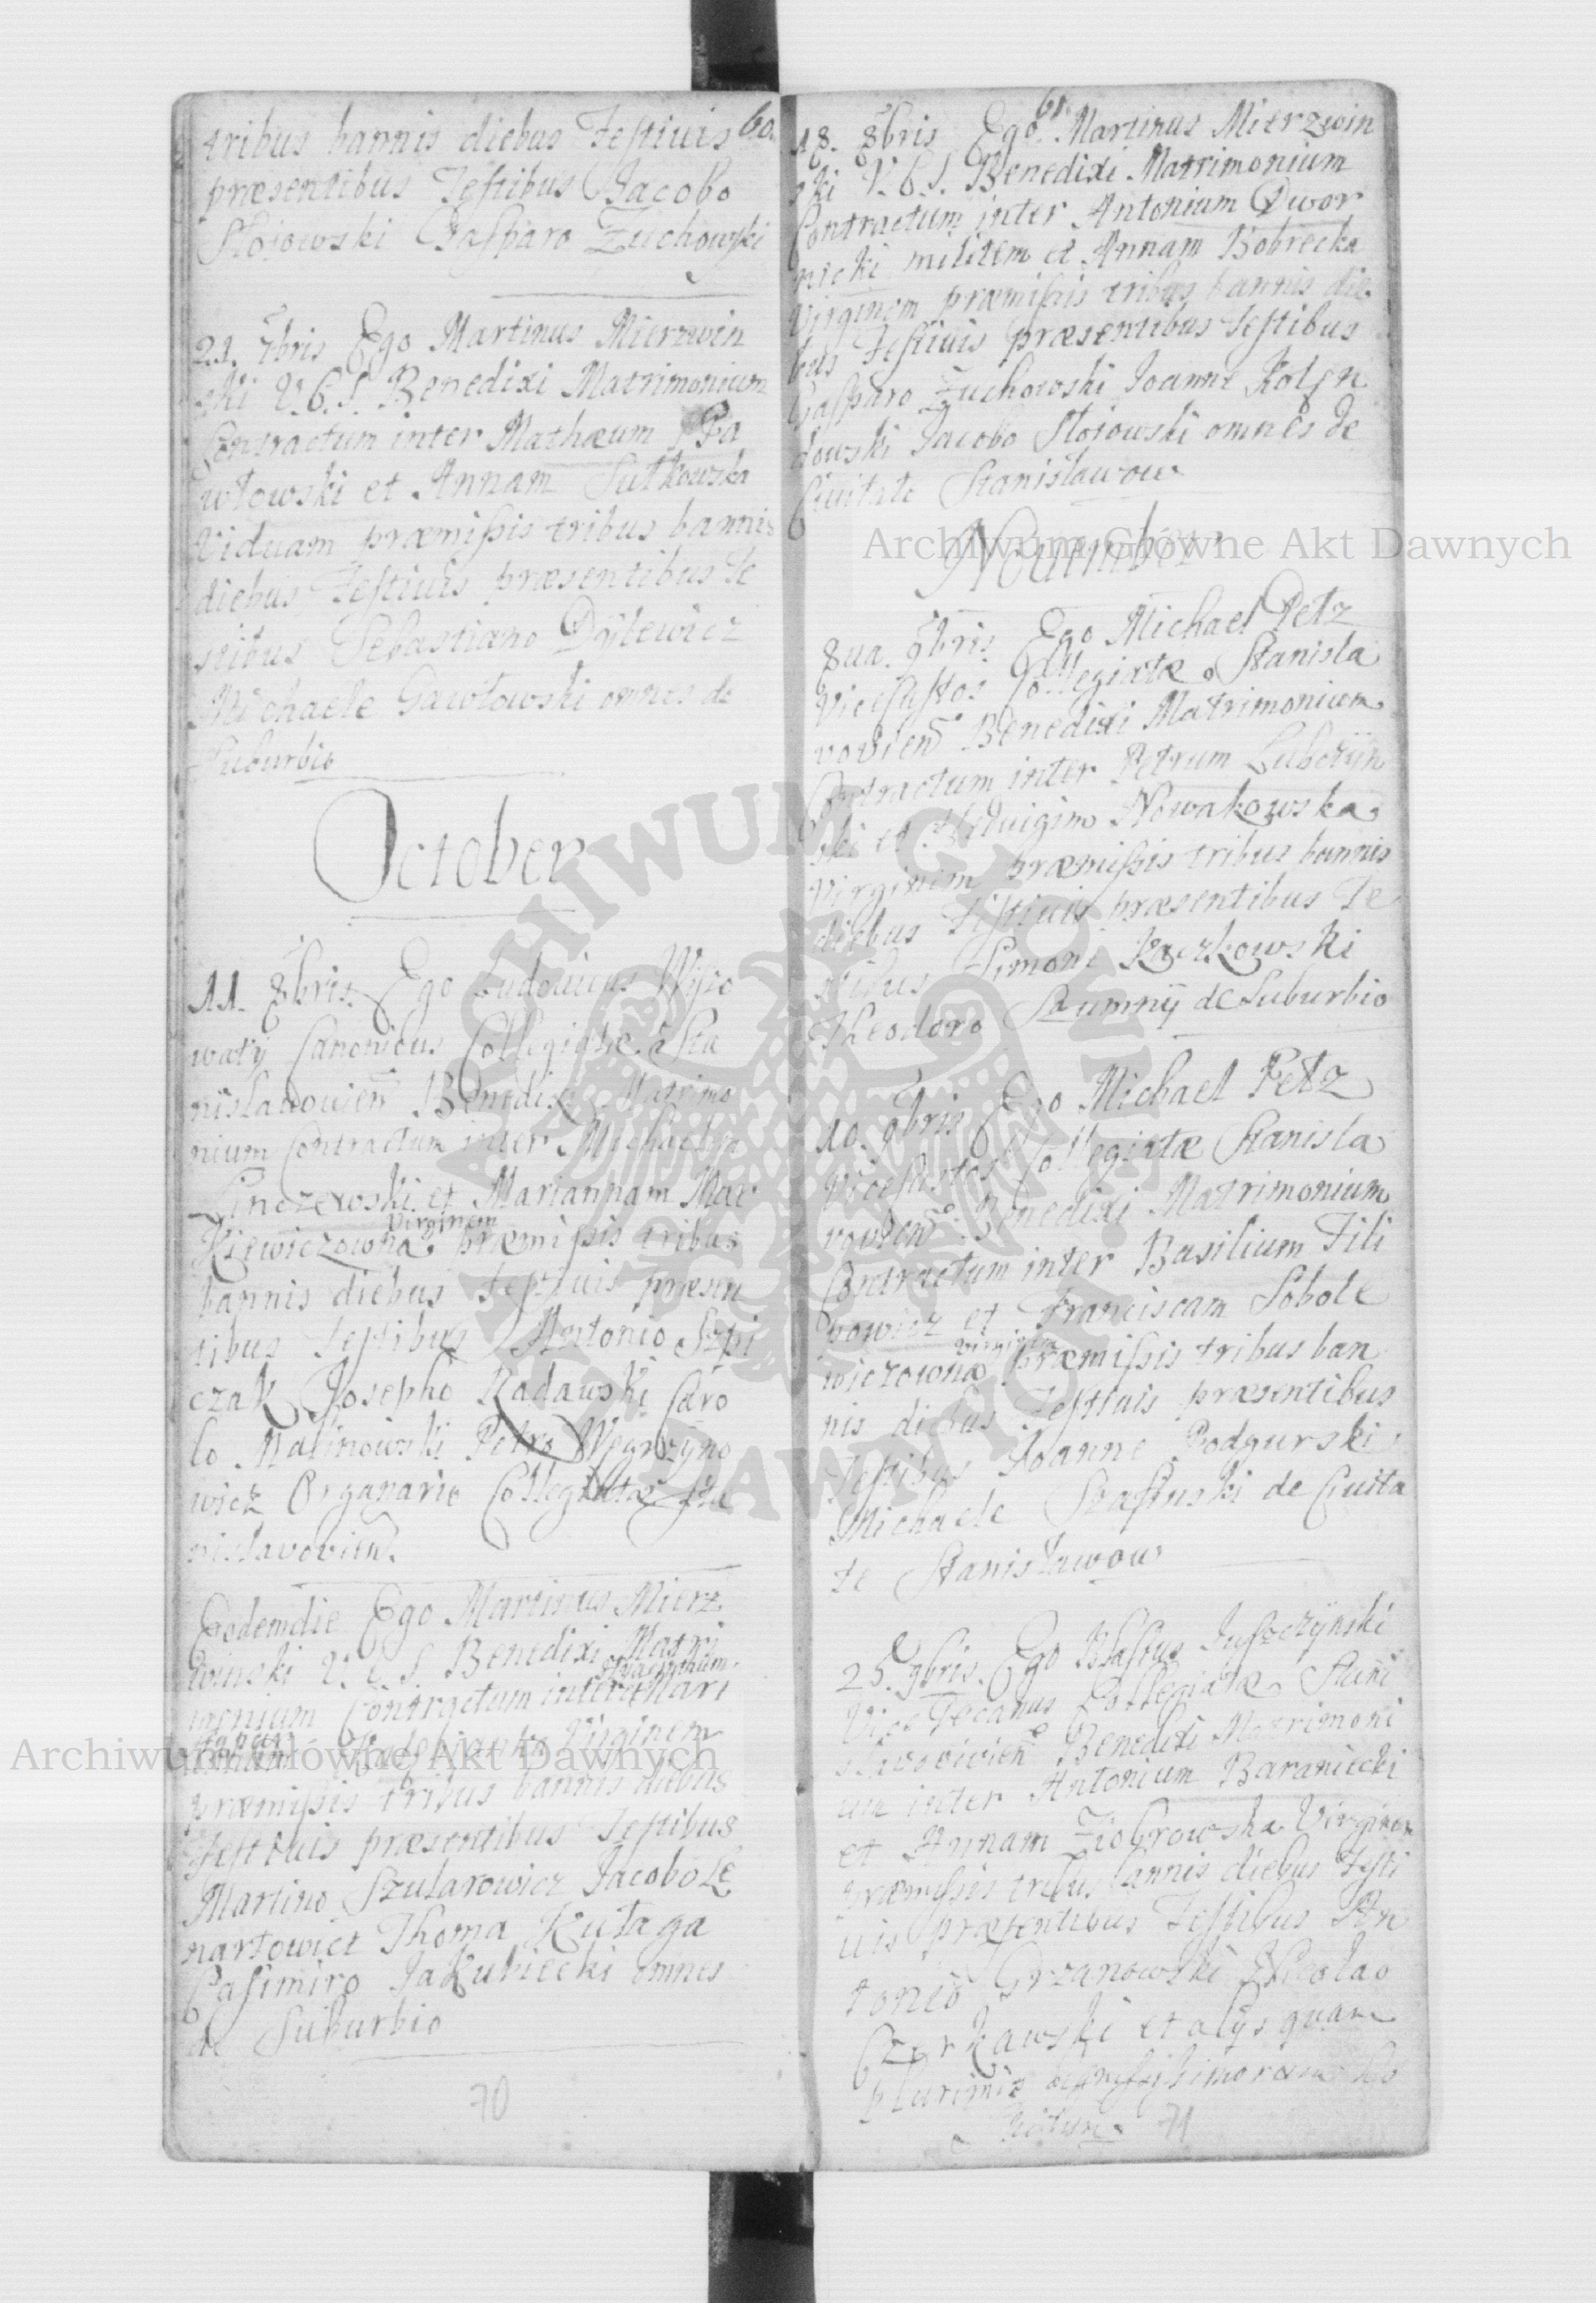 tribus bannis diebus Festiuis 60.
præsentibus Testibus Jacobo
Stoiowski Gasparo Zuchowski
21. 7bris Ego Martinus Mierzwin
ski V.C.S. Benedixi Matrimonium
Contractum inter Mathæum Pa
włowski et Annam Sutkowska
Viduam præmissis tribus bannis
diebus Festiuis præsentibus Te
stibus Sebastiano Dylewicz
Michaele Gawłowski omnes de
Suburbio
October
11. 8bris. Ego Ludouicus Wyso
waty Canonicus Collegiatæ Sta
nislauowien Benedixi Matrimo
nium Contractum inter Michaelem
Linczewski et Mariannam Mac
Virginem
kiewiczowna præmissis tribus
bannis diebus Festiuis præsen
tibus Testibus Antonio Szpi
czak Josepho Radawski Caro
lo Malinowski Petro Węgrzyno
wicz Organario Collegiatæ Sta
nislavovien.
Eodemdie Ego Martinus Mierz
winski V.C.S. Benedixi Matri
monium Contractum inter et Mari
Virginem
præmissis tribus bannis diebus
Festiuis præsentibus Testibus
Martino Szularowicz Jacobo Le
nartowicz Thoma Kułaga
Casimiro Jakubiecki omnes
de Suburbio
70
61.
18. 8bris Ego Martinus Mierzwin
ski V.C.S. Benedixi Matrimonium
Contractum inter Antonium Dwor
nicki militem et Annam Bobrecka
Virginem præmissis tribus bannis die
bus Festiuis præsentibus Testibus
Gasparo Zuchowski Joanne Kolen
dowski Jacobo Stoiowski omnes de
Ciuitate Stanisławow
Nouember
8ua. 9bris Ego Michael Petz
ViceCustos Collegiatæ Stanisla
vovien Benedixi Matrimonium
Contractum inter Petrum Luboryn
ski et Heduigim Nowakowska
Virginem præmissis tribus bannis
diebus Festiuis præsentibus Te
stibus Simone Kaczkowski
Theodoro Szumny de Suburbio
10. 9bris Ego Michael Petz
ViceCustos Collegiatæ Stanisla
vovien Benedixi Matrimonium
Contractum inter Basilium Fili
powicz et Franciscam Sobole
Virginem
wiczowna præmissis tribus ban
nis diebus Festiuis præsentibus
Testibus Joanne Podgurski
Michaele Stasinski de Ciuita
te Stanisławow
25. 9bris. Ego Blasius Juszczynski
Vice Decanus Collegiatæ Stani
slavovien Benedixi Matrimoni
um inter Antonium Baraniecki
et Annam Ziobrowska Virginem
præmissis tribus bannis diebus Festi
uis præsentibus Testibus An
tonio Grzanowski Nicolao
Czerkawski et alijs quam
plurimis
71
Archiwum Główne Akt Dawnych
Archiwum Główne Akt Dawnych
ARCHIWUM GŁÓWNE AKT DAWNYCH